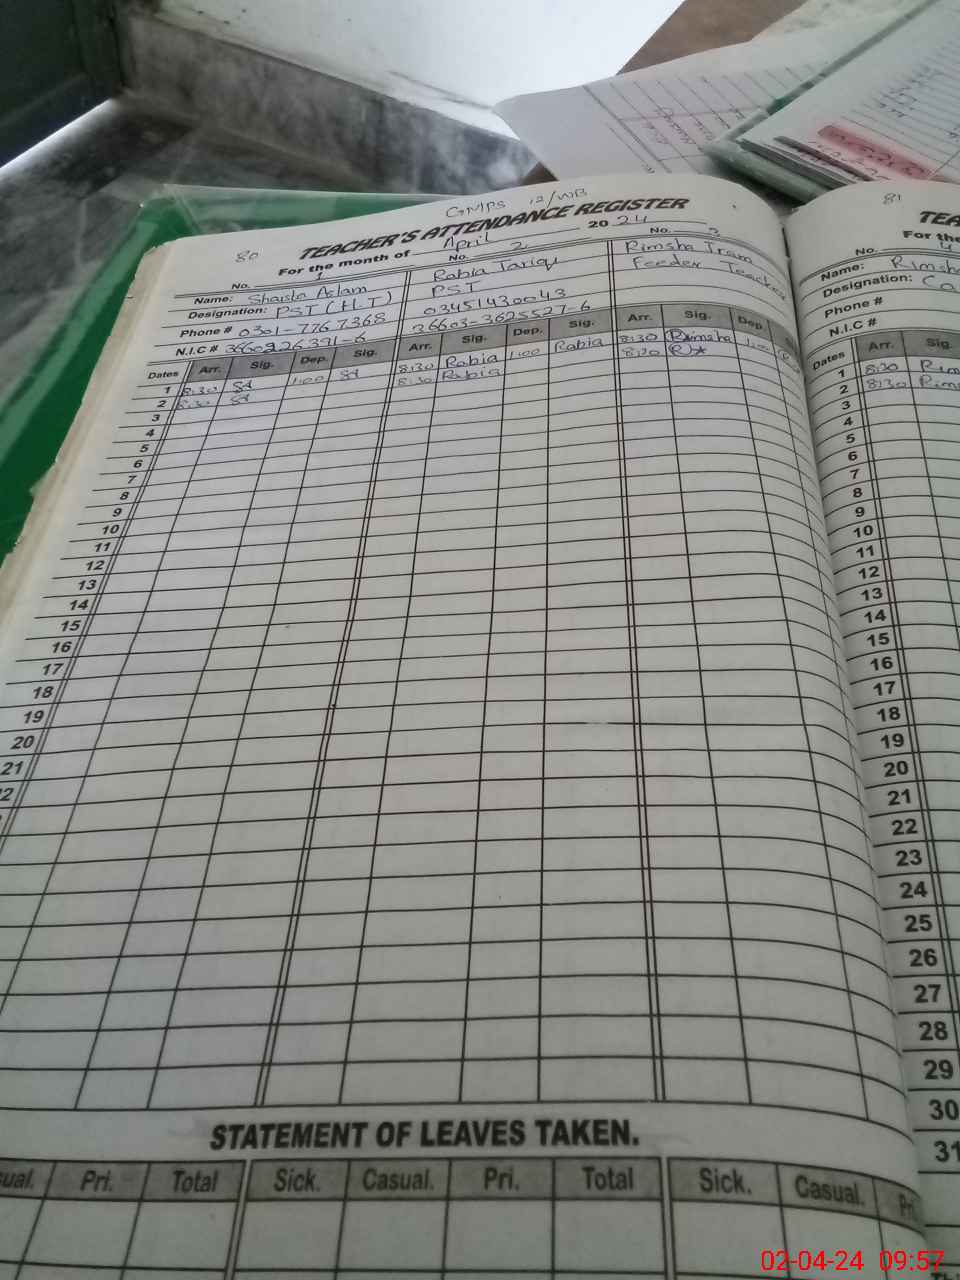 GMPS 12/WB
80
TEACHER'S ATTENDANCE REGISTER
For the month of April 2024
No. 1 No. 2 No. 3
Name: Shaista Aslam Rabia Tariq Rimsha Iram
Designation: PST (H.T) PST Feeder Teacher
Phone # 0301-7767368 03451430043
N.I.C # 36603-3625527-6
Dates Arr. Sig. Dep. Sig. Arr. Sig. Dep. Sig. Arr. Sig. Dep.
1 8:30 1:00 8:30 Rabia 1:00 Rabia 8:30 Rimsha 1:00
2 8:30 8:30 Rabia 8:30
3
4
5
6
7
8
9
10
11
12
13
14
15
16
17
18
19
20
21
STATEMENT OF LEAVES TAKEN.
Pri. Total Sick. Casual. Pri. Total Sick. Casual. Pri.
81
TEA
For the
No.
Name: Rimsh
Designation: Ca
Phone #
N.I.C #
Dates Arr. Sig.
1 8:30 Rim
2 8:30 Rim
3
4
5
6
7
8
9
10
11
12
13
14
15
16
17
18
19
20
21
22
23
24
25
26
27
28
29
30
31
02-04-24 09:57